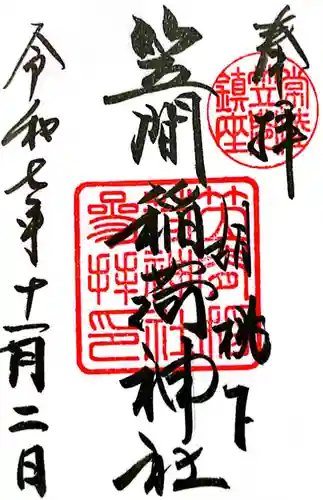 奉拝
常陸
笠間
鎮座
胡桃下
笠間稲荷神社
令和七年十一月二日